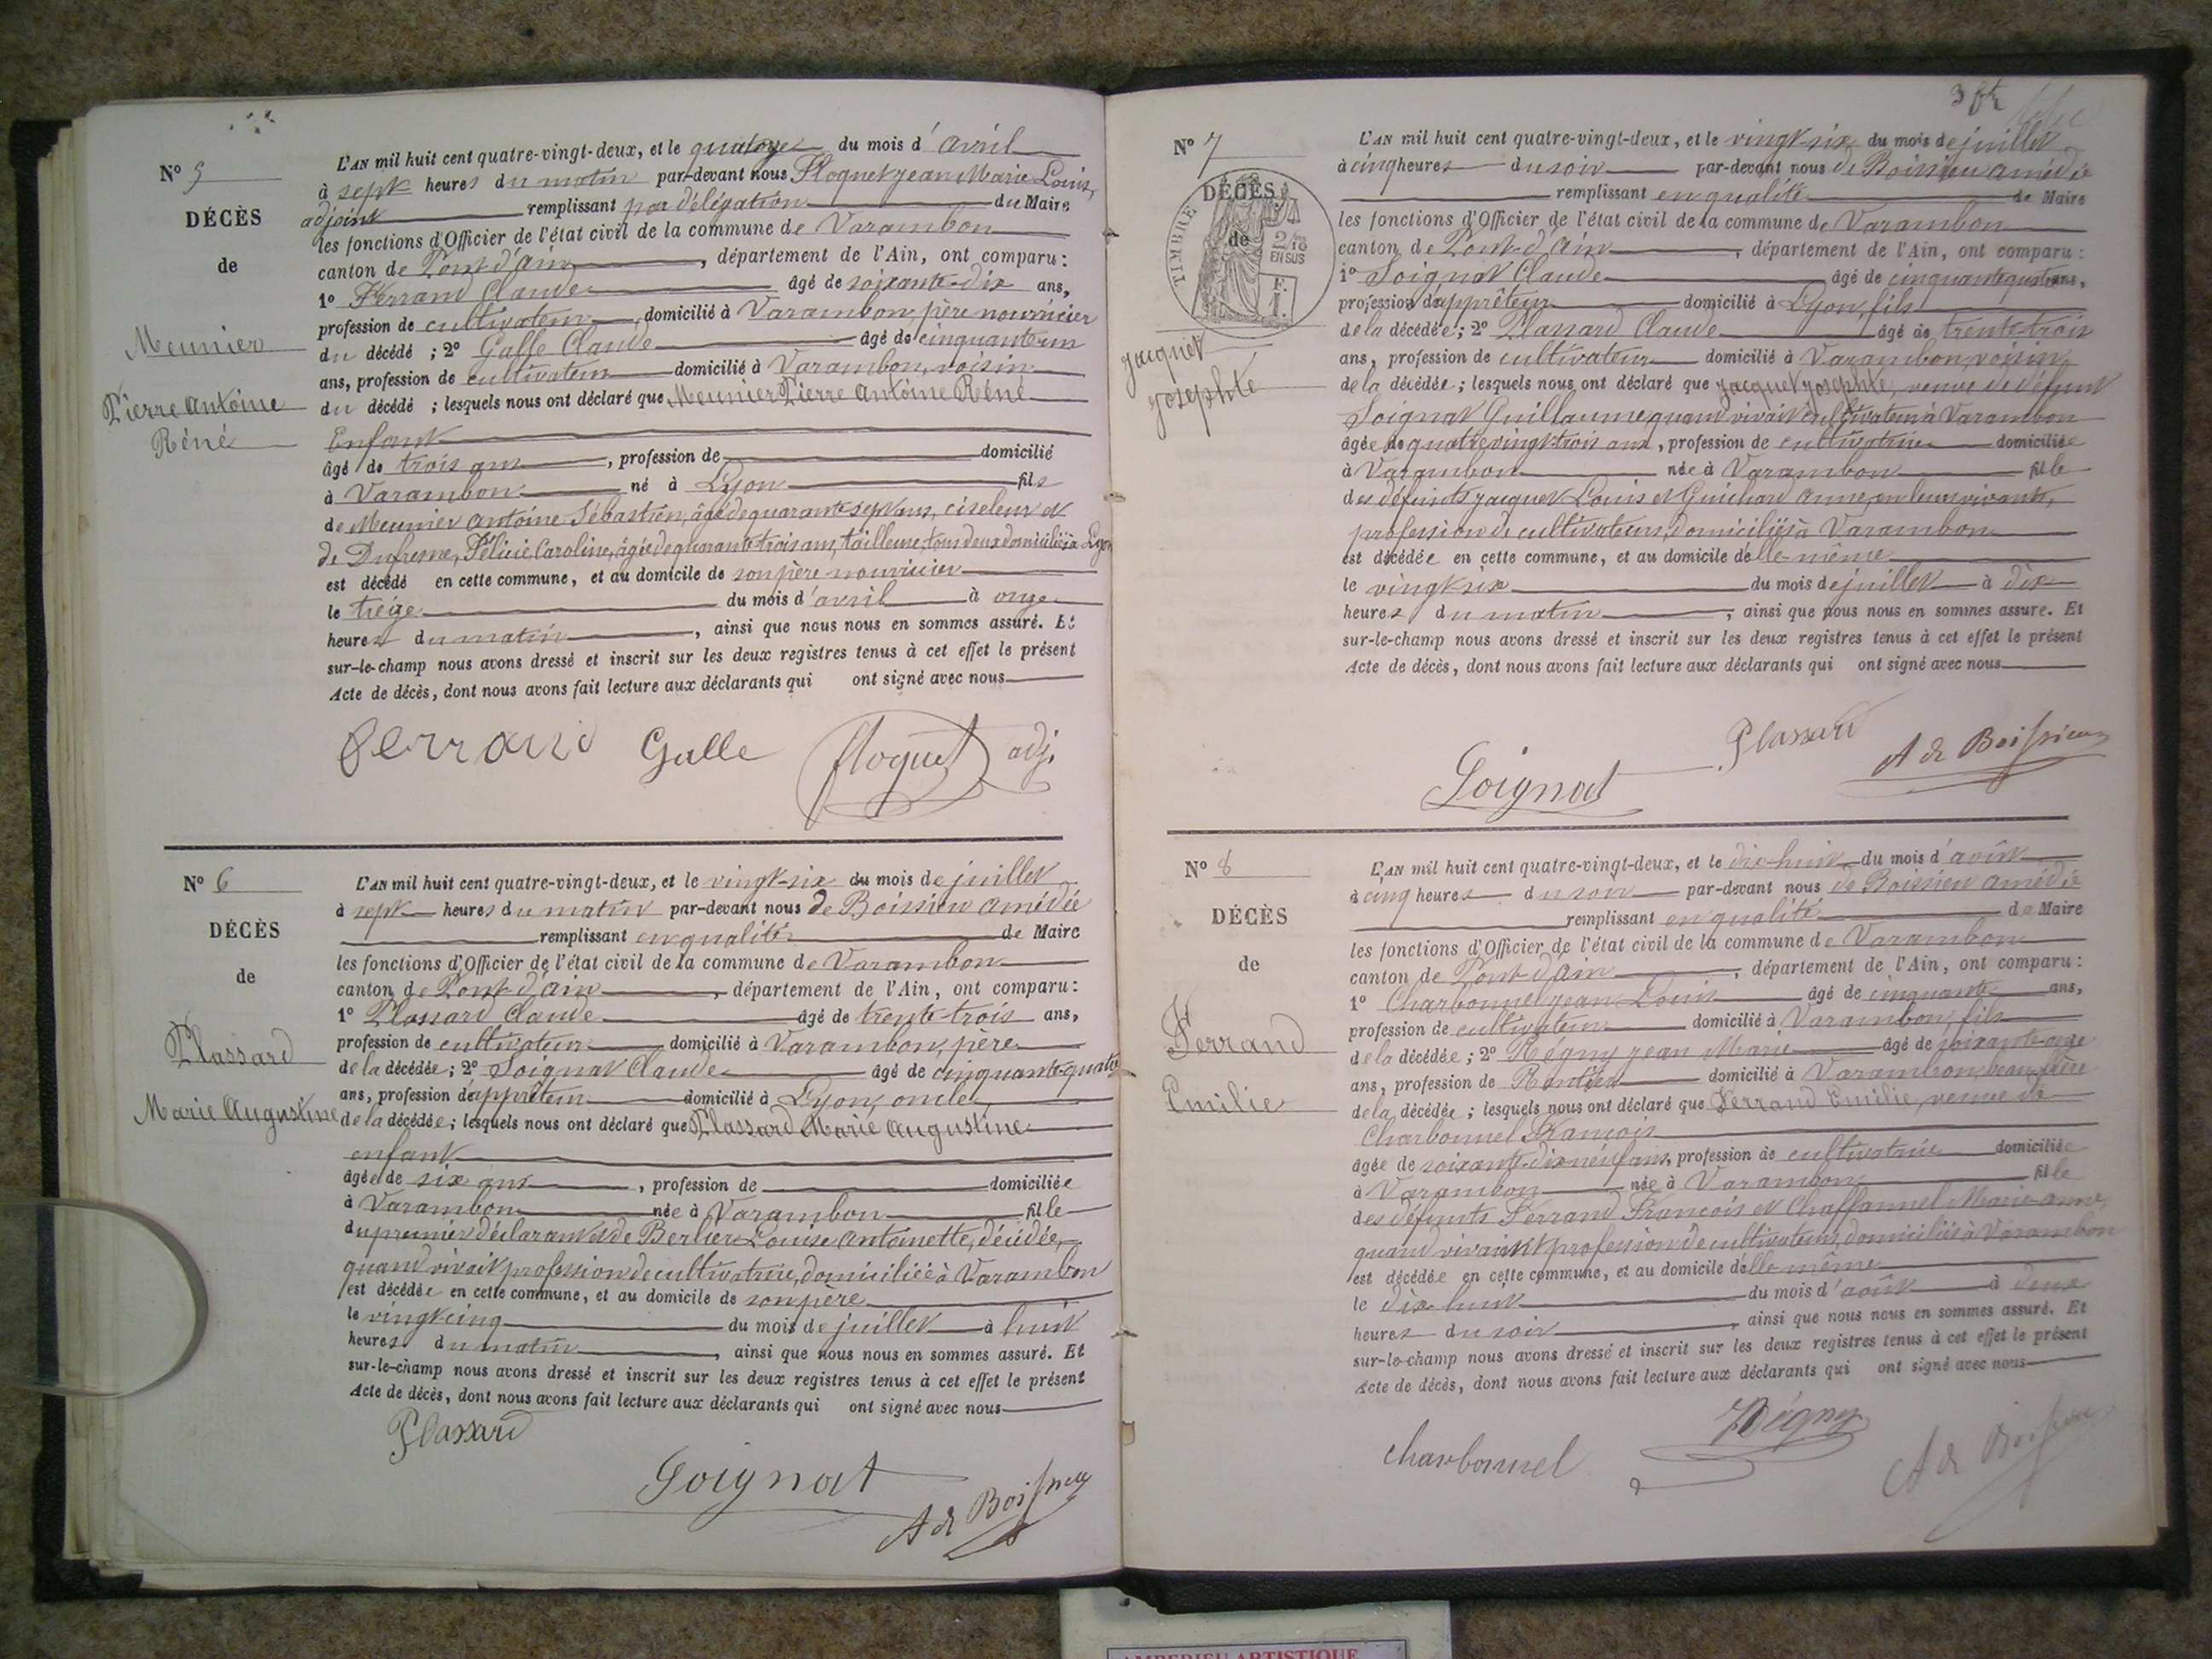 N° 5
DÉCÈS
de
Meunier
Pierre Antoine
Réné
L'AN mil huit cent quatre-vingt-deux, et le quatorze du mois d'avril
à sept heures du matin par-devant nous Floquet jean Marie Louis,
adjoint remplissant par délégation du Maire
les fonctions d'Officier de l'état civil de la commune de Varambon
canton de Pont-d'Ain, département de l'Ain, ont comparu:
1° Ferrand Claude âgé de soixante-dix ans,
profession de cultivateur, domicilié à Varambon, père nourricier
du décédé; 2° Galle Claude âgé de cinquante un
ans, profession de cultivateur domicilié à Varambon, voisin
du décédé; lesquels nous ont déclaré que Meunier Pierre Antoine Réné
Enfant
âgé de trois ans, profession de domicilié
à Varambon né à Lyon fils
de Meunier Antoine Sébastien, âgé de quarante sept ans, ciseleur et
de Dufresne, Félicie Caroline, âgée de quarante trois ans, tailleuse, tous deux domiciliés à Lyon
est décédé en cette commune, et au domicile de son père nourricier
le treize du mois d'avril à onze
heures du matin, ainsi que nous nous en sommes assuré. Et
sur-le-champ nous avons dressé et inscrit sur les deux registres tenus à cet effet le présent
Acte de décès, dont nous avons fait lecture aux déclarants qui ont signé avec nous
Ferrand Galle Floquet adj.
N° 6
DÉCÈS
de
Plassard
Marie Augustine
L'AN mil huit cent quatre-vingt-deux, et le vingt-six du mois de juillet
à sept heures du matin par-devant nous de Boissieu Amédée
remplissant en qualité de Maire
les fonctions d'Officier de l'état civil de la commune de Varambon
canton de Pont-d'Ain, département de l'Ain, ont comparu:
1° Plassard Claude âgé de trente-trois ans,
profession de cultivateur domicilié à Varambon, père
de la décédée; 2° Soignat Claude âgé de cinquante-quatre
ans, profession d'apprêteur domicilié à Lyon, oncle
de la décédée; lesquels nous ont déclaré que Plassard Marie Augustine
enfant
âgée de six ans, profession de domiciliée
à Varambon née à Varambon fille
du premier déclarant et de Berlier Louise Antoinette, décédée,
quand vivait profession de cultivatrice, domiciliée à Varambon
est décédée en cette commune, et au domicile de son père
le vingt cinq du mois de juillet à huit
heures du matin, ainsi que nous nous en sommes assuré. Et
sur-le-champ nous avons dressé et inscrit sur les deux registres tenus à cet effet le présent
Acte de décès, dont nous avons fait lecture aux déclarants qui ont signé avec nous
Plassard
Soignat
A de Boissieu
3 ft
N° 7
DÉCÈS
de
TIMBRE
2/10
EN SUS
F.
1.
jacquet
josephte
L'AN mil huit cent quatre-vingt-deux, et le vingt-six du mois de juillet
à cinq heures du soir par-devant nous de Boissieu Amédée
remplissant en qualité de Maire
les fonctions d'Officier de l'état civil de la commune de Varambon
canton de Pont-d'Ain, département de l'Ain, ont comparu:
1° Soignat Claude âgé de cinquante quatre ans,
profession d'apprêteur domicilié à Lyon, fils
de la décédée; 2° Plassard Claude âgé de trente-trois
ans, profession de cultivateur domicilié à Varambon, voisin
de la décédée; lesquels nous ont déclaré que jacquet josephte, veuve de défunt
Soignat Guillaume quand vivait cultivateur à Varambon
âgée de quatre vingt trois ans, profession de cultivatrice domiciliée
à Varambon née à Varambon fille
des défunts jacquet Louis et Guichard Anne, en leurs vivants,
profession de cultivateurs, domiciliés à Varambon
est décédée en cette commune, et au domicile d'elle-même
le vingt six du mois de juillet à dix
heures du matin, ainsi que nous nous en sommes assuré. Et
sur-le-champ nous avons dressé et inscrit sur les deux registres tenus à cet effet le présent
Acte de décès, dont nous avons fait lecture aux déclarants qui ont signé avec nous
Plassard
Soignat
A de Boissieu
N° 8
DÉCÈS
de
Ferrand
Emilie
L'AN mil huit cent quatre-vingt-deux, et le dix-huit du mois d'août
à cinq heures du soir par-devant nous de Boissieu Amédée
remplissant en qualité de Maire
les fonctions d'Officier de l'état civil de la commune de Varambon
canton de Pont-d'Ain, département de l'Ain, ont comparu:
1° Charbonnel jean Louis âgé de cinquante ans,
profession de cultivateur domicilié à Varambon, fils
de la décédée; 2° Régny jean Marie âgé de soixante-onze
ans, profession de Rentier domicilié à Varambon, beau-frère
de la décédée; lesquels nous ont déclaré que Ferrand Emilie, veuve de
Charbonnel François
âgée de soixante-dix neuf ans, profession de cultivatrice domiciliée
à Varambon née à Varambon fille
des défunts Ferrand François et Chaffannel Marie-anne,
quand vivaient profession de cultivateurs, domiciliés à Varambon
est décédée en cette commune, et au domicile d'elle-même
le dix huit du mois d'août à deux
heures du soir, ainsi que nous nous en sommes assuré. Et
sur-le-champ nous avons dressé et inscrit sur les deux registres tenus à cet effet le présent
Acte de décès, dont nous avons fait lecture aux déclarants qui ont signé avec nous
Charbonnel
Régny
A de Boissieu
AMBERIEU ARTISTIQUE